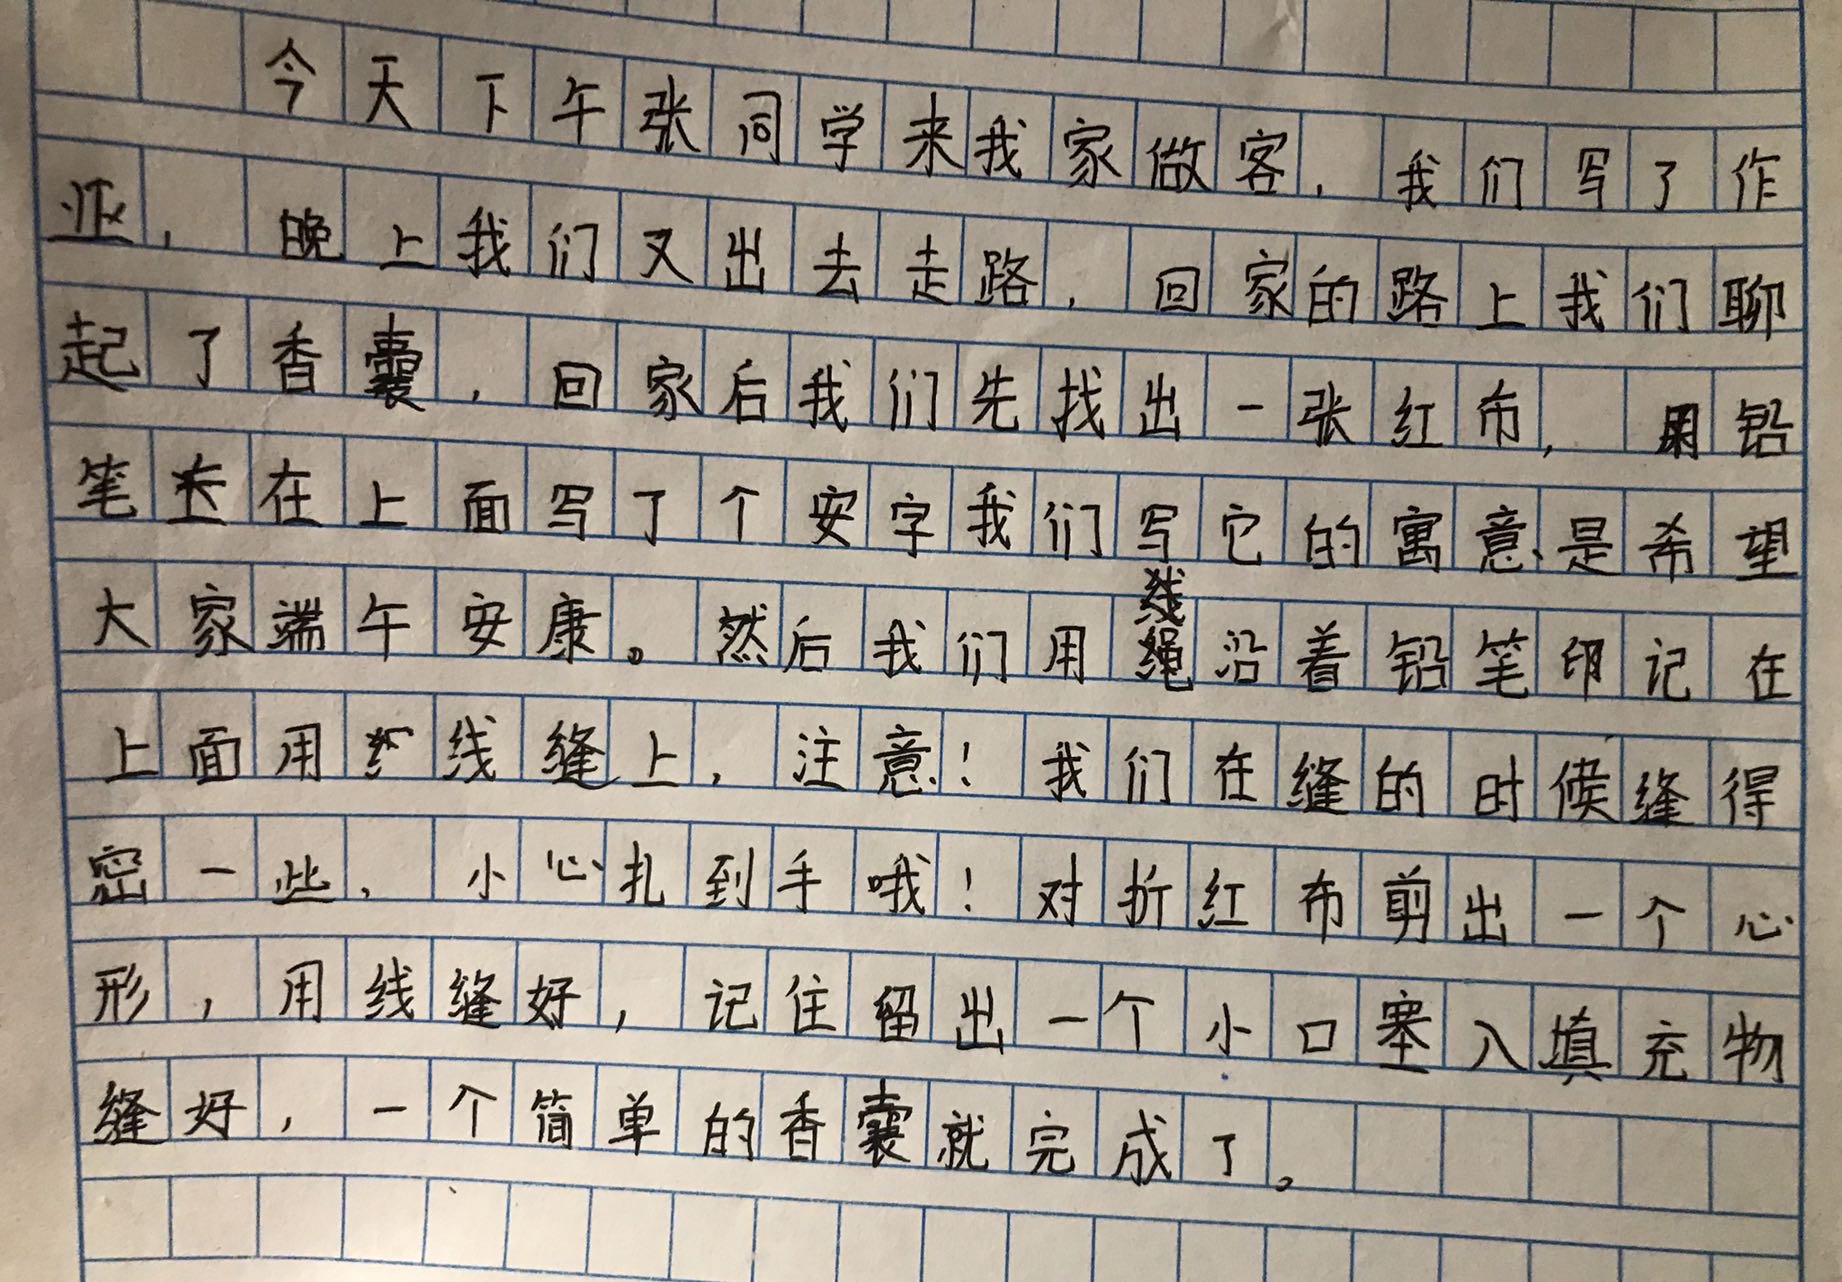 今天下午张同学来我家做客，我们写了作
业，晚上我们又出去走路，回家的路上我们聊
起了香囊，回家后我们先找出一张红布，用铅
笔在上面写了个安字我们写它的寓意是希望
大家端午安康。然后我们用线沿着铅笔印记在
上面用线缝上，注意！我们在缝的时候缝得
密一些，小心扎到手哦！对折红布剪出一个心
形，用线缝好，记住留出一个小口塞入填充物
缝好，一个简单的香囊就完成了。